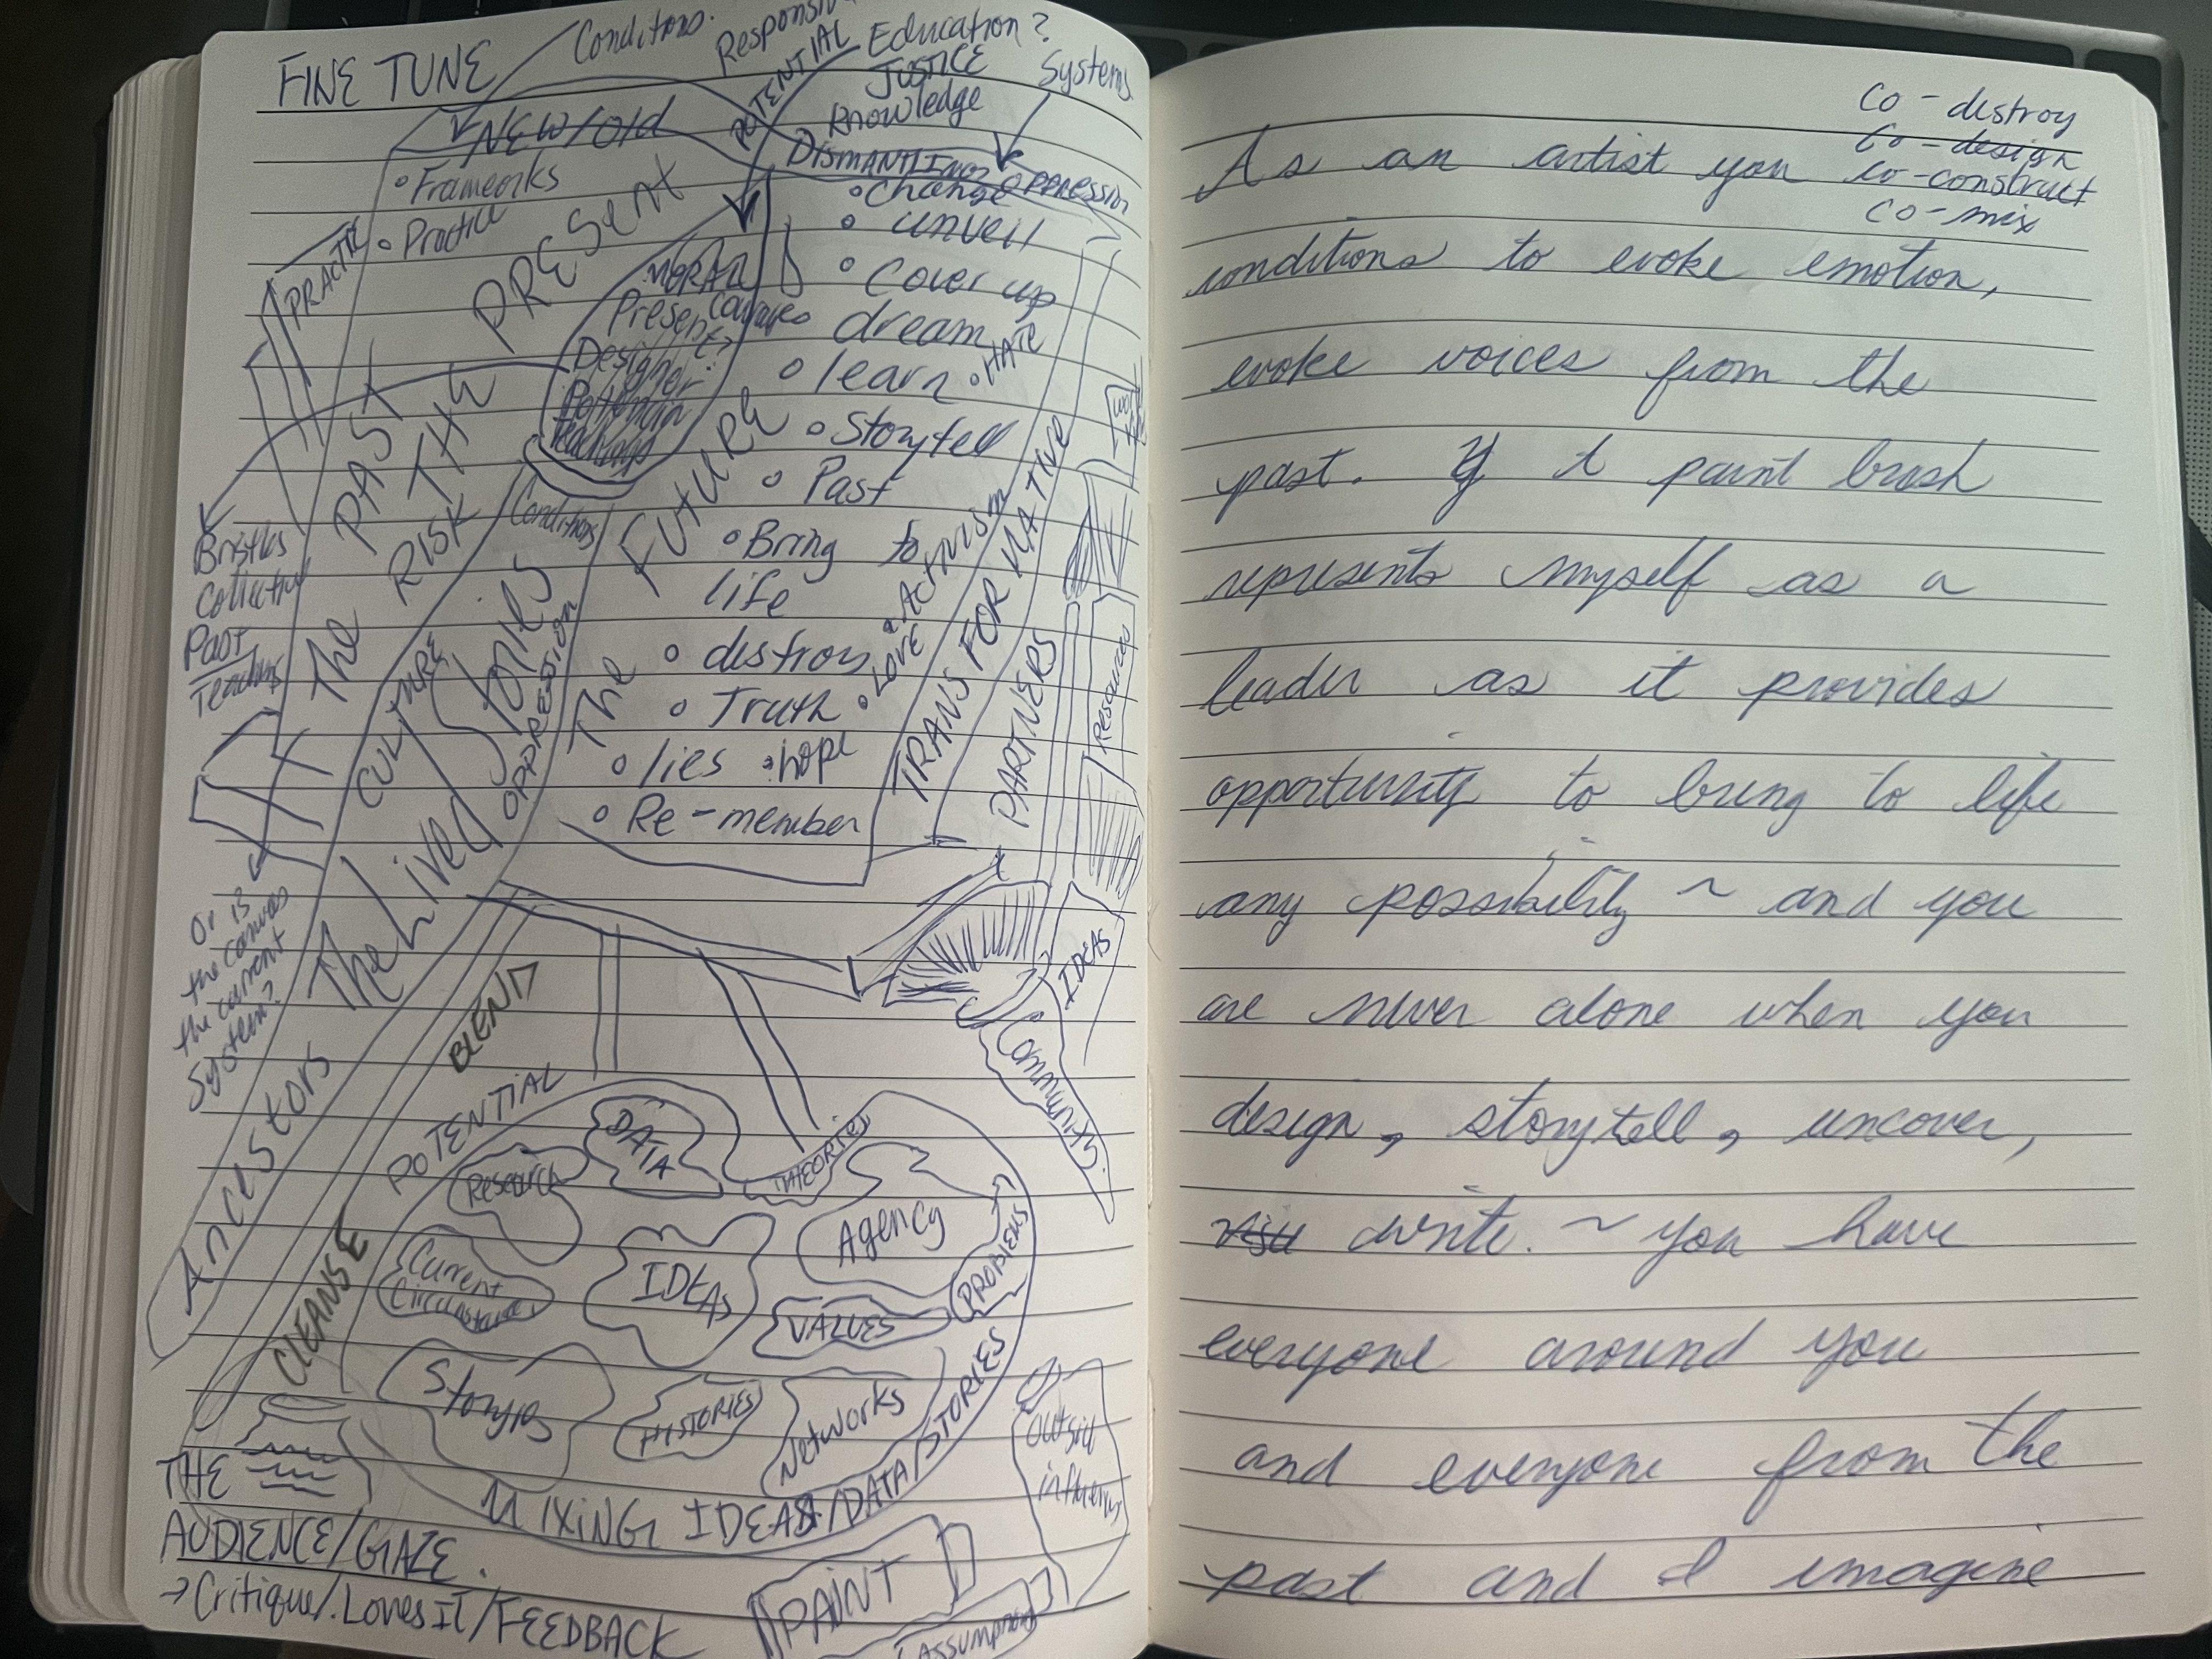 FINE TUNE
Conditions.
POTENTIAL
Education?
JUSTICE
Knowledge
Systems
NEW/Old
• Frameworks
• Practice
PRACTICE
DISMANTLING
OPPRESSION
• Change
• unveil
• Cover up
dream
• learn
• HATE
• Storytell
• Past
• Bring to
life
• Activism
• destroy
• LOVE
• Truth
• lies
• hope
• Re-member
The PAST
THE PRESENT
The FUTURE
RISK
MORAL
Courage
Present
Designer
Conditions
Bristles
Collective
Past
Teachings
CULTURE
The Lived Stories
OPPRESSION
TRANSFORMATIVE
PARTNERS
Resources
IDEAS
Community
Or is
the canvas
the current
System?
Ancestors
BLEND
POTENTIAL
CLEANSE
Research
DATA
THEORIES
Agency
PROBLEMS
Current
Circumstances
IDEAS
VALUES
Stories
HISTORIES
Networks
MIXING IDEAS/DATA/STORIES
outside
THE
AUDIENCE/GAZE.
→ Critique/.Loves IT/FEEDBACK
PAINT
Co-destroy
Co-design
co-construct
co-mix
As an artist you
conditions to evoke emotion,
evoke voices from the
past. If paint brush
represents myself as a
leader as it provides
opportunity to bring to life
any possibility ~ and you
are never alone when you
design, storytell, uncover,
write. ~ you have
everyone around you
and everyone from the
past and I imagine